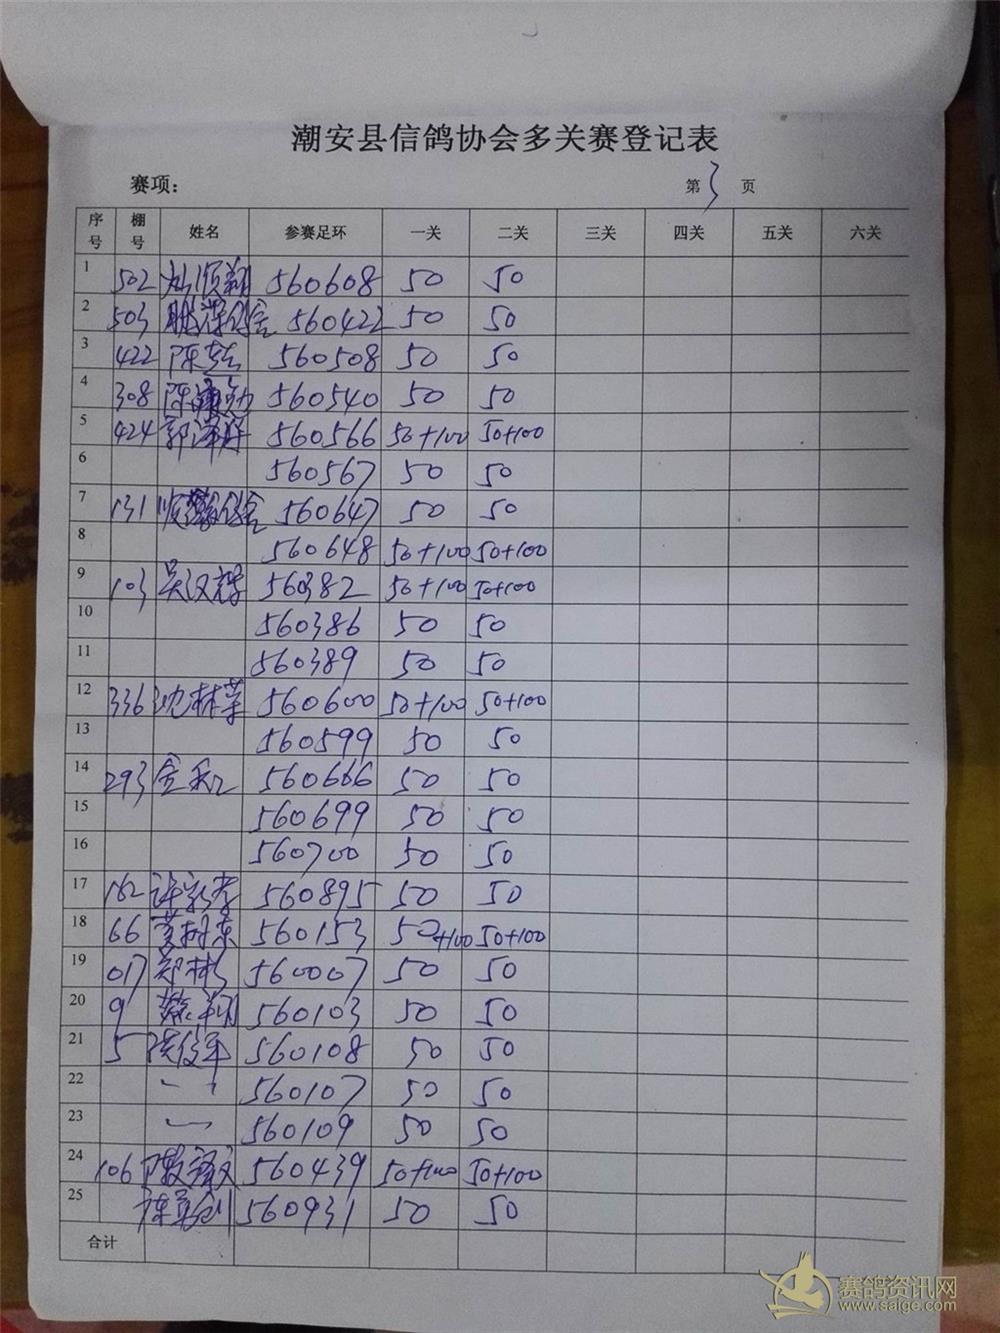 潮安县信鸽协会多关赛登记表
赛项: 第 3 页
序号 棚号 姓名 参赛足环 一关 二关 三关 四关 五关 六关
1 502 顺翔 560608 50 50
2 503 560422 50 50
3 422 陈 560508 50 50
4 308 陈 560540 50 50
5 424 郭泽群 560566 50+100 50+100
6 560567 50 50
7 131 顺 560647 50 50
8 560648 50+100 50+100
9 103 吴汉 560382 50+100 50+100
10 560386 50 50
11 560389 50 50
12 336 沈林 560600 50+100 50+100
13 560599 50 50
14 293 金 560666 50 50
15 560699 50 50
16 560700 50 50
17 162 许 560895 50 50
18 66 黄树东 560153 50+100 50+100
19 017 郑彬 560007 50 50
20 9 560103 50 50
21 5 560108 50 50
22 560107 50 50
23 560109 50 50
24 106 560439 50+100 50+100
25 560931 50 50
合计
赛鸽资讯网
www.saige.com